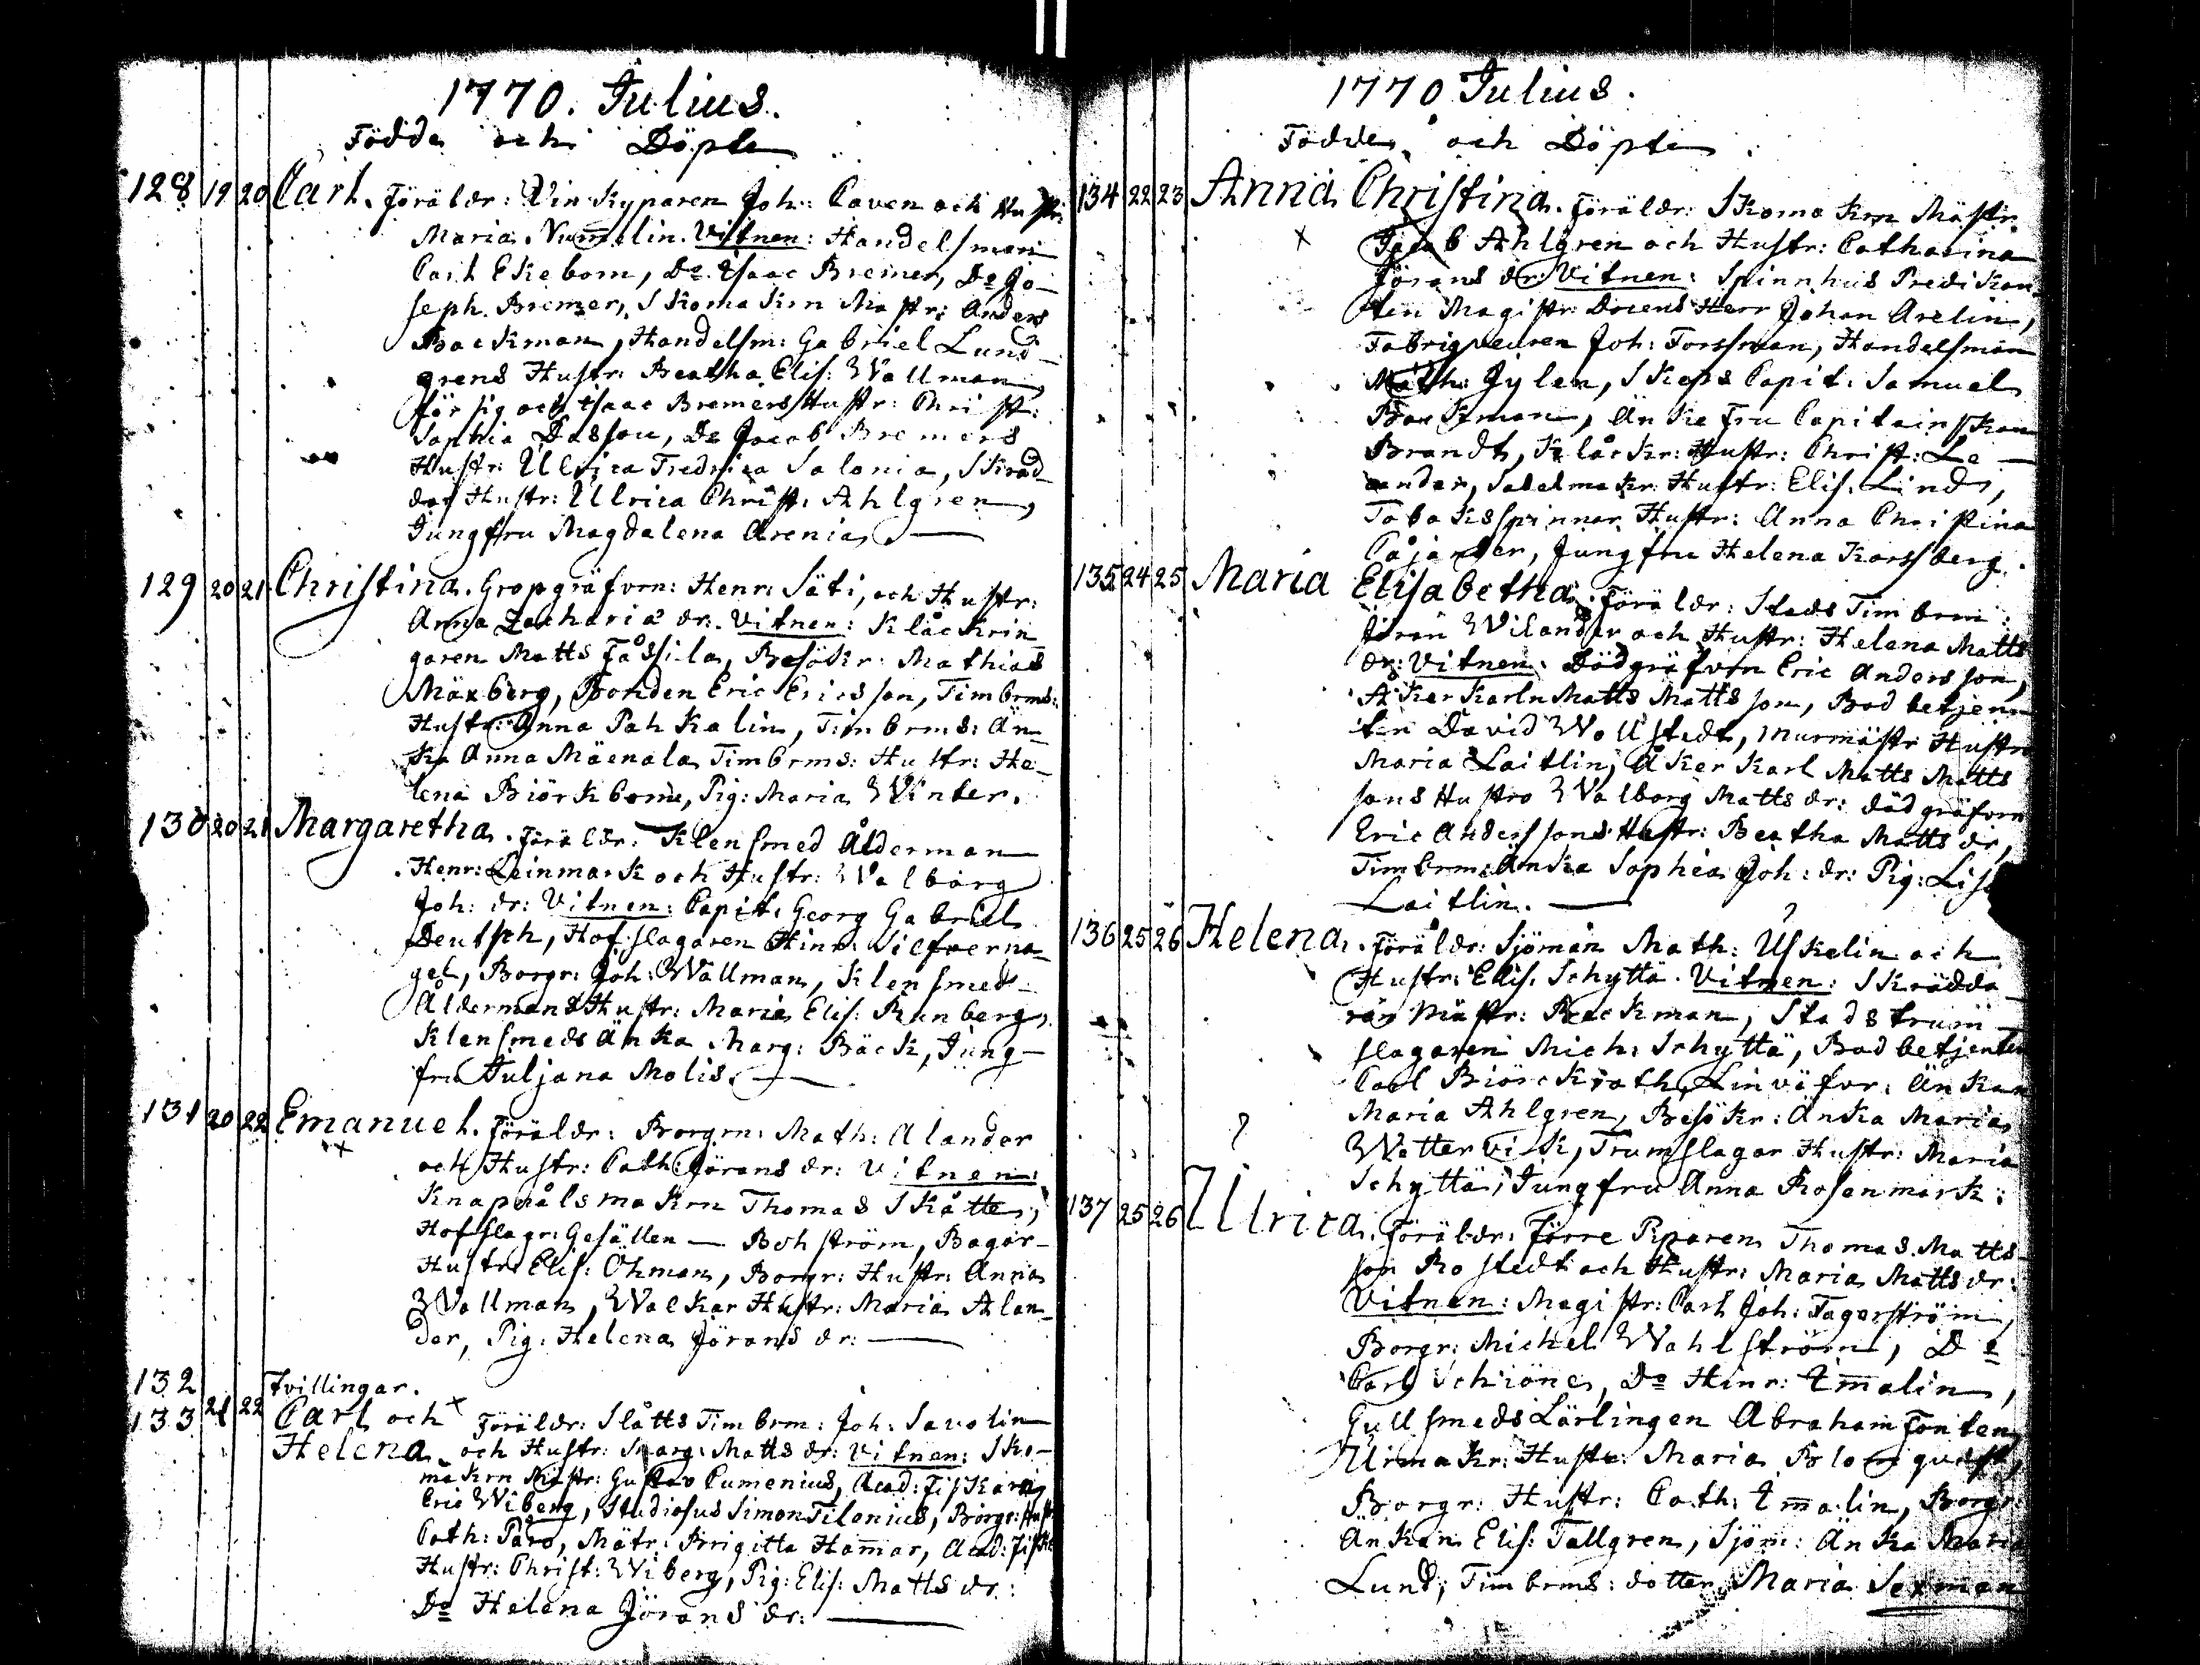 1770. Julius.
Födde och Döpte
128 19 20 Carl. Föräldr: Vin Kyparen Joh: Caven och Hustr:
Maria Num̅elin. Vitnen: Handelsman
Carl Ekebom, Do Isaac Bremer, Do Jo-
seph Bremer, Skomakrn Mästr: Anders
Backman, Handelsm: Gabriel Lund-
grens Hustr: Beatha Elis: Wallman,
för sig och Isaac Bremers Hustr: Christ:
Sophia Dassou, Do Jacob Bremers
Hustr: Ulrica Fredrica Salonia, Skräd-
dar Hustr: Ulrica Christ: Ahlgren,
Jungfru Magdalena Arenia.
129 20 21 Christina. Gropgräfvrn: Henr: Säti, och Hustr:
Anna Zachariæ dr. Vitnen: Klåckrin
garen Matts Fåssila, Besökr: Mathias
Mäxberg, Bonden Eric Ericsson, Timbrms:
Hustr: Anna Pahkalin, Timbrms: Än-
ka Anna Mäenala Timbrms: Hustr: He-
lena Biörkbom, Pig: Maria Winter.
130 20 21 Margaretha. Föräldr: Klensmed Ålderman
Henr: Leinmark och Hustr: Walborg
Joh: dr: Vitnen: Capit: Georg Gabriel
Deutsch, Hofslagaren Hinr: Silfverna-
gel, Borgr: Joh: Wallman, Klensmeds-
Åldermans Hustr: Maria Elis: Renberg,
Klensmeds Änka Marg: Bäck, Jung-
fru Juljana Molis.
131 20 22 Emanuel. Föräldr: Borgrn: Math: Alander
och Hustr: Cath: Jörans dr: Vitnen:
Knapnålsmakrn Thomas Skåtte,
Hofslagr: Gesällen — Bohström, Bagar-
Hustr: Elis: Öhman, Borgr: Hustr: Anna
Wallman, Walkar Hustr: Maria Alan-
der, Pig: Helena Jörans dr:
132 Tvillingar.
133 21 22 Carl och Föräldr: Slåtts Timbrm: Joh: Savolin
Helena och Hustr: Marg: Matts dr: Vitnen: Sko-
makrn Mästr: Gustav Cumenius, Acad: Fiskaren
Eric Wiberg, Studiosus Simon Tilenius, Borgr: Hustr
Cath: Paro, Mätr: Brigitta Ham̅ar, Acad: Fiska
Hustr: Christ: Wiberg, Pig: Elis: Matts dr:
Do Helena Jörans dr:
1770 Julius.
Födde och Döpte
134 22 23 Anna Christina. Föräldr: Skomakrn Mästr
Jacob Ahlgren och Hustr: Catharina
Jörans dr Vitnen: Spinnhus Predikan
ten Magistr: Docens Herr Johan Arelin,
Fabriqueuren Joh: Forssman, Handelsman
Math: Jylen, Skeps Capit: Samuel
Backman, Änke Fru Capitainskan
Brandt, Klåckr: Hustr: Christ: Le-
ander, Sadelmakr: Hustr: Elis: Lind,
Tobaksspinnar Hustr: Anna Christina
Påjander, Jungfru Helena Korsberg.
135 24 25 Maria Elisabetha. Föräldr: Stads Timbrm:
Jöran Wilander och Hustr: Helena Matts
dr: Vitnen: Dödgräfvrn Eric Andersson,
Åkerkarln Matts Mattsson, Bod betjenn
ten David Wallstedt, Murmästr Hustr
Maria Laitlin, Åkerkarl Matts Matts
sons Hustro Walborg Matts dr: dödgräfvrn
Eric Anderssons Hustr: Beatha Matts dr,
Timbrm: Änka Sophia Joh: dr: Pig: Lisa
Laitlin.
136 25 26 Helena. Föräldr: Sjöman Math: Uskelin och
Hustr: Elis. Schyttä. Vitnen: Skrädda-
ren Mästr: Backman, Stads trum̅-
slagaren Mich: Schyttä, Bod betjenten
Carl Biörckroth, Linväfvr: Änkan
Maria Ahlgren, Besökr: Änka Maria
Wettervik, Trumslagar Hustr: Maria
Schyttä, Jungfru Anna Rosenmark:
137 25 26 Ulrica. Föräldr: Förre Piparen Thomas Matts-
son Rostedt och Hustr: Maria Matts dr:
Vitnen: Magistr: Carl Joh: Fagerström,
Borgr: Michel Wahlström, Do
Carl Schiöne, Do Hinr: Im̅alin,
Gullsmeds Lärlingen Abraham Fonten
Urmakr: Hustr: Maria Blomquist,
Borgr: Hustr: Cath: Im̅alin, Borgr:
Änkan Elis: Tallgren, Sjöm: Änka Maria
Lund, Timbrms: dotter Maria Sexman